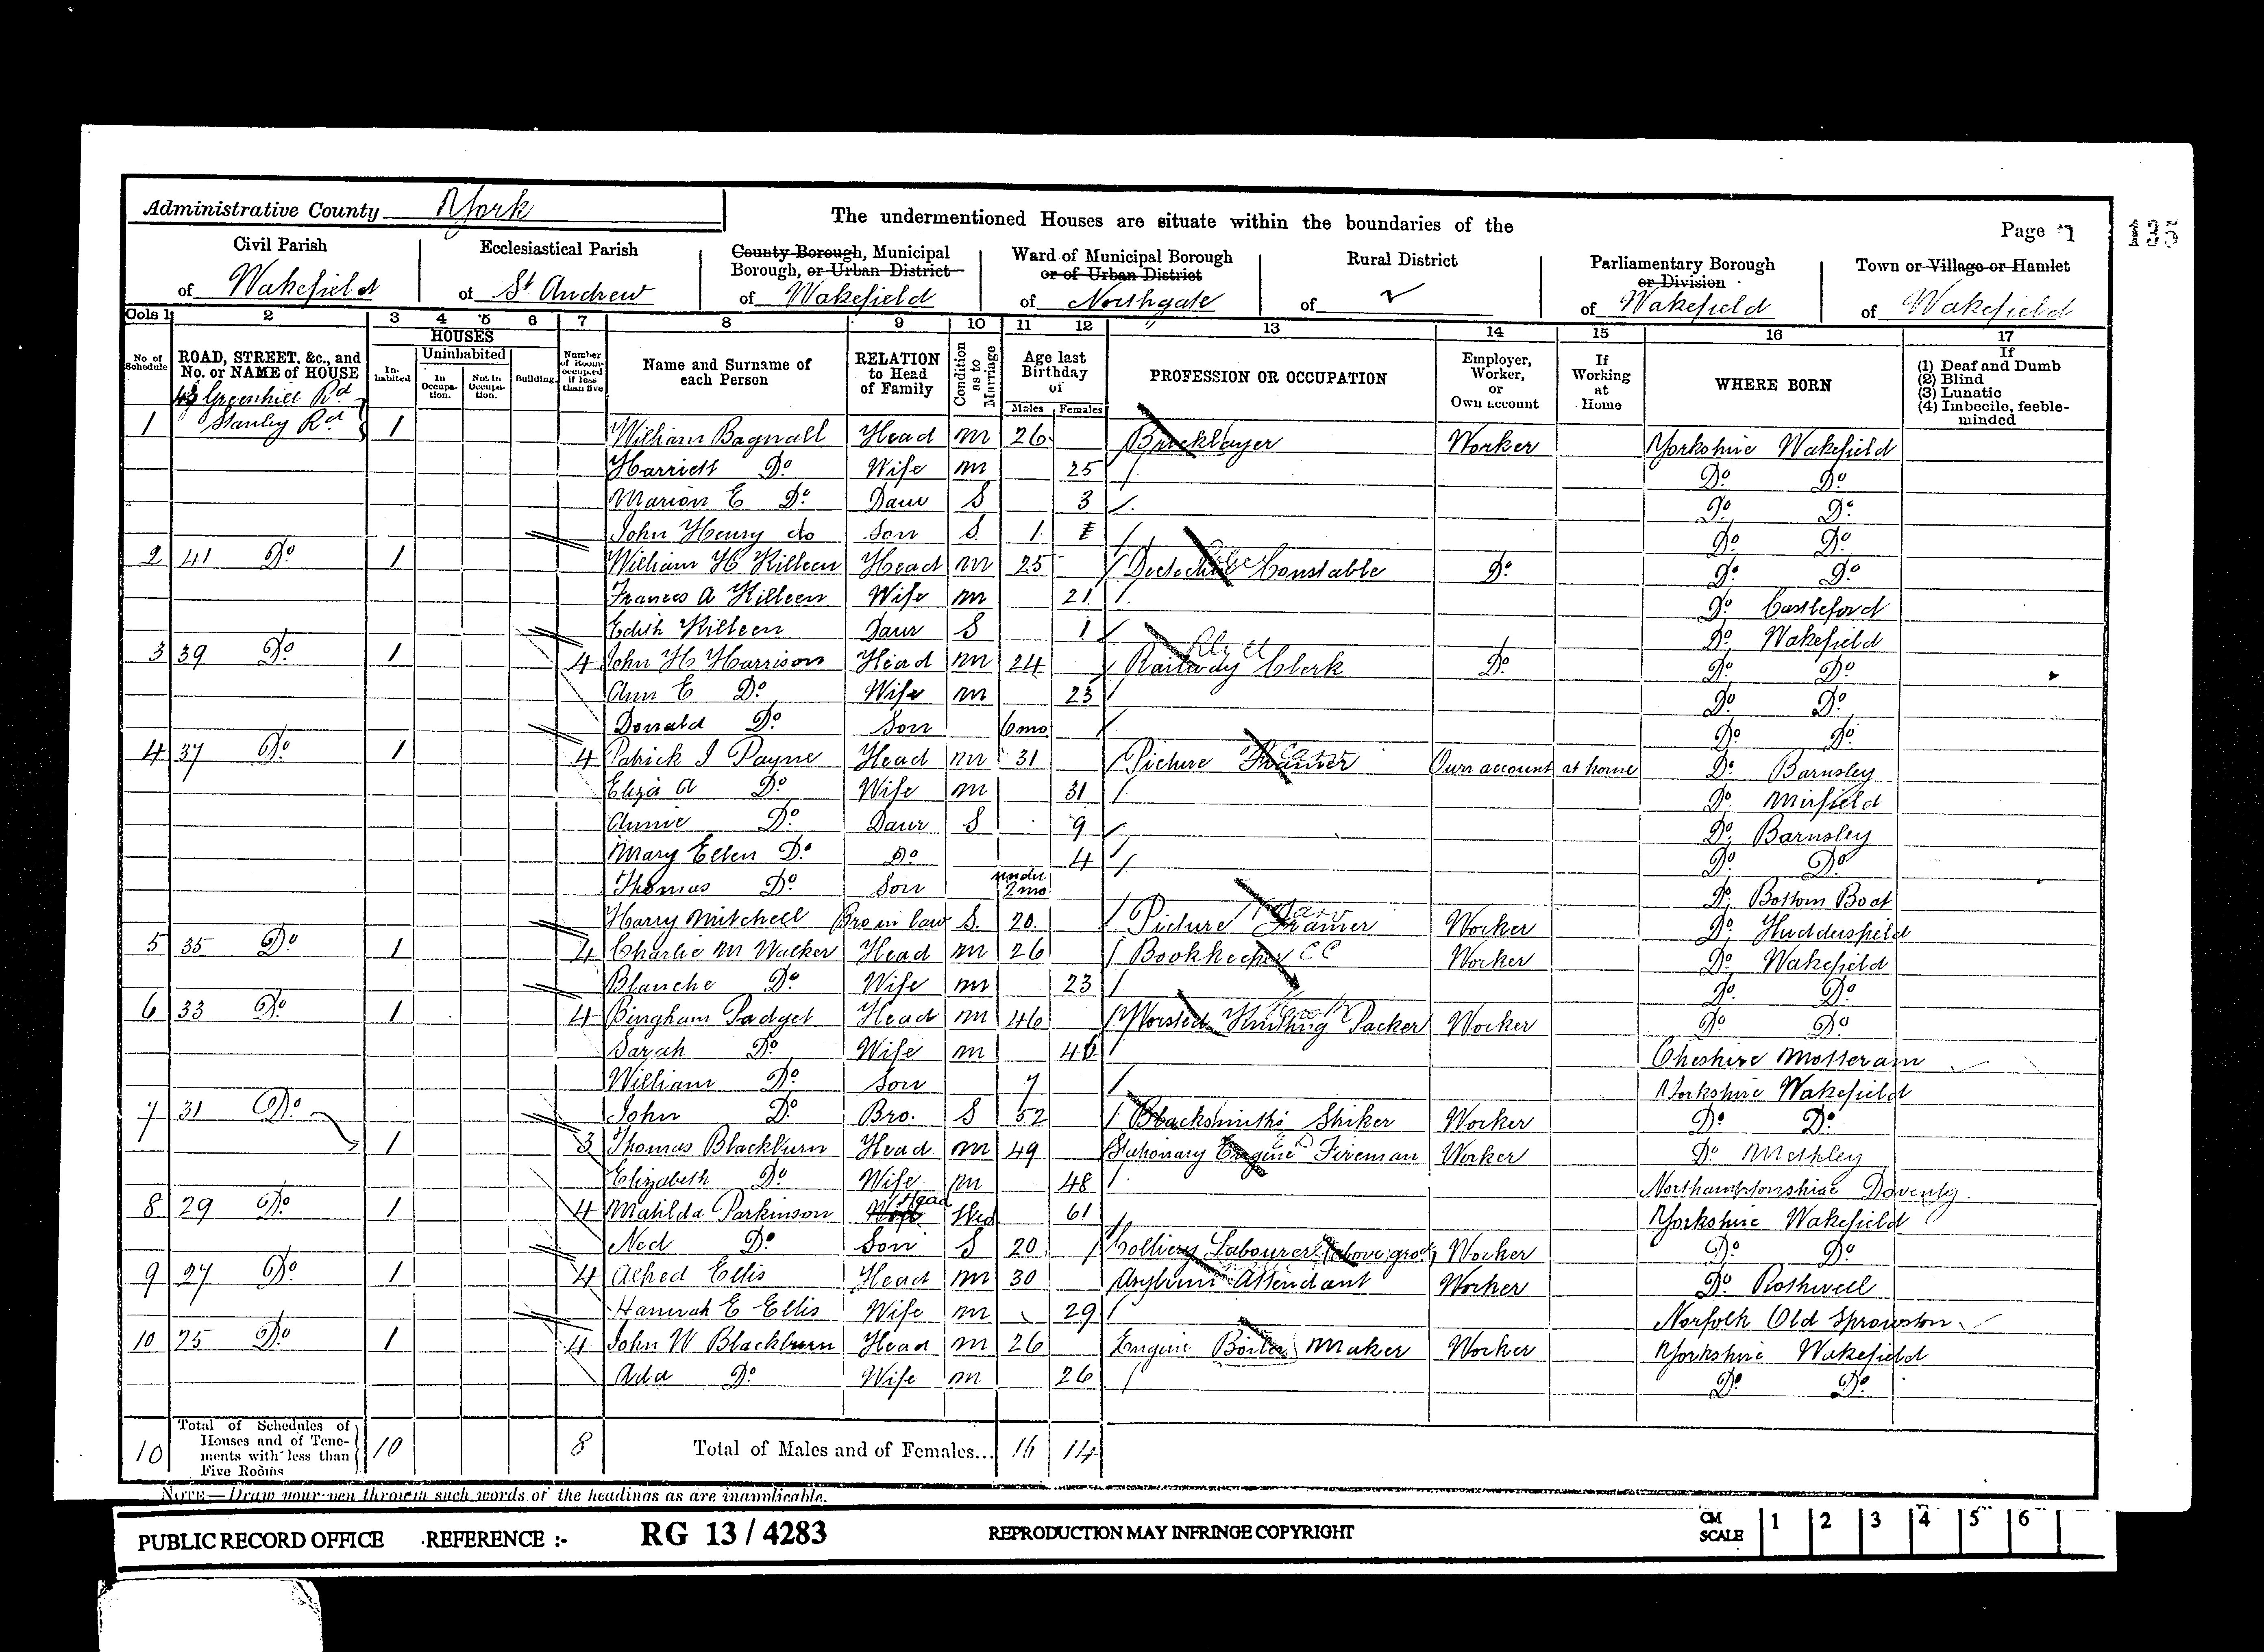 Administrative County York
The undermentioned Houses are situate within the boundaries of the
Page 1
135
Civil Parish of Wakefield
Ecclesiastical Parish of St. Andrew
County Borough, Municipal Borough, or Urban District of Wakefield
Ward of Municipal Borough or of Urban District of Northgate
Rural District of
Parliamentary Borough or Division of Wakefield
Town or Village or Hamlet of Wakefield
Cols 1 2 3 4 5 6 7 8 9 10 11 12 13 14 15 16 17
No. of Schedule
ROAD, STREET, &c., and No. or NAME of HOUSE
HOUSES
In-habited
Uninhabited
In Occupa-tion.
Not in Occupa-tion.
Building.
Number of Rooms occupied if less than five
Name and Surname of each Person
RELATION to Head of Family
Condition as to Marriage
Age last Birthday of
Males Females
PROFESSION OR OCCUPATION
Employer, Worker, or Own account
If Working at Home
WHERE BORN
If
(1) Deaf and Dumb
(2) Blind
(3) Lunatic
(4) Imbecile, feeble-minded
43 Greenhill Rd
1 Stanley Rd 1 William Bagnall Head M 26 Bricklayer Worker Yorkshire Wakefield
Harriett Do Wife M 25 Do Do
Marion E Do Daur S 3 Do Do
John Henry do Son S 1 Do Do
2 41 Do 1 William H Killeen Head M 25 Detective Constable Do Do Do
Frances A Killeen Wife M 21 Do Castleford
Edith Killeen Daur S 1 Do Wakefield
3 39 Do 1 4 John H Harrison Head M 24 Railway Clerk Do Do Do
Ann E Do Wife M 23 Do Do
Donald Do Son 6mo Do Do
4 37 Do 1 4 Patrick J Payne Head M 31 Picture Framer Own account at home Do Barnsley
Eliza A Do Wife M 31 Do Mirfield
Annie Do Daur S 9 Do Barnsley
Mary Ellen Do Do 4 Do Do
Thomas Do Son under 2mo Do Bottom Boat
Harry Mitchell Bro in law S 20 Picture Framer Worker Do Huddersfield
5 35 Do 1 4 Charlie M Walker Head M 26 Bookkeeper CC Worker Do Wakefield
Blanche Do Wife M 23 Do Do
6 33 Do 1 4 Bingham Padget Head M 46 Worsted Knitting Packer Worker Do Do
Sarah Do Wife M 46 Cheshire Motteram
William Do Son 7 Yorkshire Wakefield
7 31 Do John Do Bro. S 52 Blacksmiths Striker Worker Do Do
1 3 Thomas Blackburn Head M 49 Stationary Engine Fireman Worker Do Methley
Elizabeth Do Wife M 48 Northamptonshire Daventy
8 29 Do 1 4 Matilda Parkinson Head Wid 61 Yorkshire Wakefield
Ned Do Son S 20 Colliery Labourer (above grod) Worker Do Do
9 27 Do 1 4 Alfred Ellis Head M 30 Asylum Attendant Worker Do Rothwell
Hannah E Ellis Wife M 29 Norfolk Old Sprowston
10 25 Do 1 4 John W Blackburn Head M 26 Engine Boiler Maker Worker Yorkshire Wakefield
Ada Do Wife M 26 Do Do
10 Total of Schedules of Houses and of Tene-ments with less than Five Rooms 10 8 Total of Males and of Females... 16 14
NOTE—Draw your pen through such words of the headings as are inapplicable.
PUBLIC RECORD OFFICE REFERENCE :- RG 13/4283 REPRODUCTION MAY INFRINGE COPYRIGHT CM SCALE 1 2 3 4 5 6